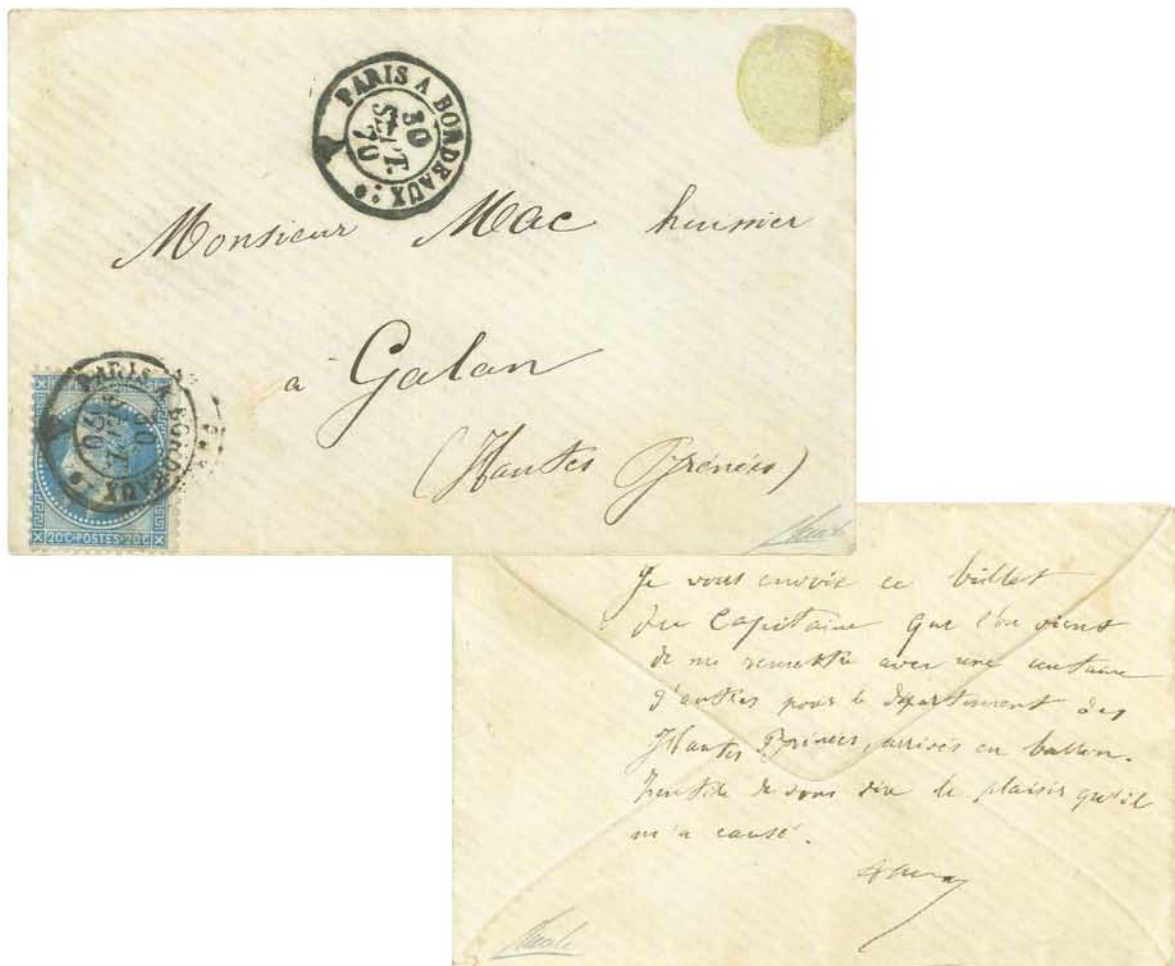 PARIS A BORDEAUX
30
SEPT.
70
A
Monsieur Mac
à Galan
(Hautes Pyrénées)
PARIS A BORDEAUX
SEPT.
70
A
20C·POSTES·20C
Je vous envoie ce billet
du Capitaine que l'on vient
de me remettre avec une centaine
d'autres pour le département des
Hautes Pyrénées, arrivés en ballon.
Inutile de vous dire le plaisir qu'il
m'a causé.